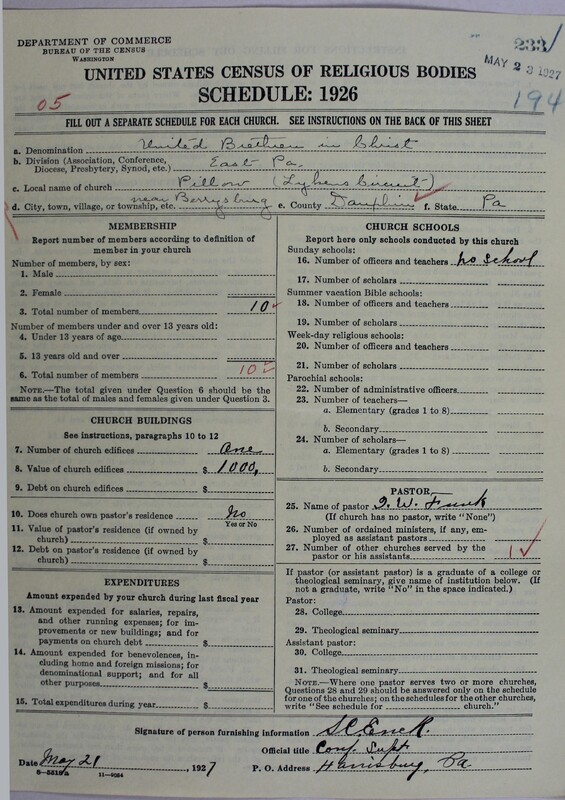 DEPARTMENT OF COMMERCE
BUREAU OF THE CENSUS
WASHINGTON
233/
MAY 23 1927
194
05
UNITED STATES CENSUS OF RELIGIOUS BODIES
SCHEDULE: 1926
FILL OUT A SEPARATE SCHEDULE FOR EACH CHURCH. SEE INSTRUCTIONS ON THE BACK OF THIS SHEET
a. Denomination United Brethren in Christ
b. Division (Association, Conference, Diocese, Presbytery, Synod, etc.) East Pa.
c. Local name of church Pillow (Lykens Circuit)
d. City, town, village, or township, etc. near Berrysburg e. County Dauphin f. State Pa
MEMBERSHIP
Report number of members according to definition of
member in your church
Number of members, by sex:
1. Male
2. Female
3. Total number of members 10
Number of members under and over 13 years old:
4. Under 13 years of age
5. 13 years old and over
6. Total number of members 10
NOTE.—The total given under Question 6 should be
same as the total of males and females given under Question 3.
CHURCH BUILDINGS
See instructions, paragraphs 10 to 12
7. Number of church edifices One
8. Value of church edifices $ 1000,
9. Debt on church edifices $
10. Does church own pastor's residence No
Yes or No
11. Value of pastor's residence (if owned by
church) $
12. Debt on pastor's residence (if owned by
church) $
EXPENDITURES
Amount expended by your church during last fiscal year
13. Amount expended for salaries, repairs,
and other running expenses; for im-
provements or new buildings; and for
payments on church debt $
14. Amount expended for benevolences, in-
cluding home and foreign missions; for
denominational support; and for all
other purposes $
15. Total expenditures during year $
CHURCH SCHOOLS
Report here only schools conducted by this church
Sunday schools:
16. Number of officers and teachers no school
17. Number of scholars
Summer vacation Bible schools:
18. Number of officers and teachers
19. Number of scholars
Week-day religious schools:
20. Number of officers and teachers
21. Number of scholars
Parochial schools:
22. Number of administrative officers
23. Number of teachers—
a. Elementary (grades 1 to 8)
b. Secondary
24. Number of scholars—
a. Elementary (grades 1 to 8)
b. Secondary
PASTOR
25. Name of pastor W. Funk
(If church has no pastor, write "None")
26. Number of ordained ministers, if any, em-
ployed as assistant pastors
27. Number of other churches served by the
pastor or his assistants 1
If pastor (or assistant pastor) is a graduate of a college or
theological seminary, give name of institution below. (If
not a graduate, write "No" in the space indicated.)
Pastor:
28. College
29. Theological seminary
Assistant pastor:
30. College
31. Theological seminary
NOTE.—Where one pastor serves two or more churches,
Questions 28 and 29 should be answered only on the schedule
for one of the churches; on the schedules for the other churches,
write "See schedule for church."
Signature of person furnishing information S C Enck.
Official title Conf Supt
Date May 21, 1927 P. O. Address Harrisburg, Pa
8-5519a 11-9054